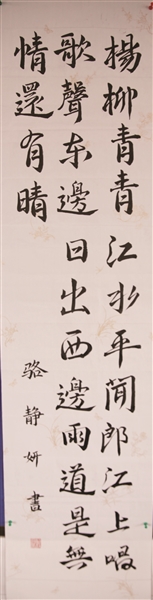 楊柳青青江水平聞郎江上唱
歌聲东邊日出西邊雨道是無
情還有晴
骆静妍書